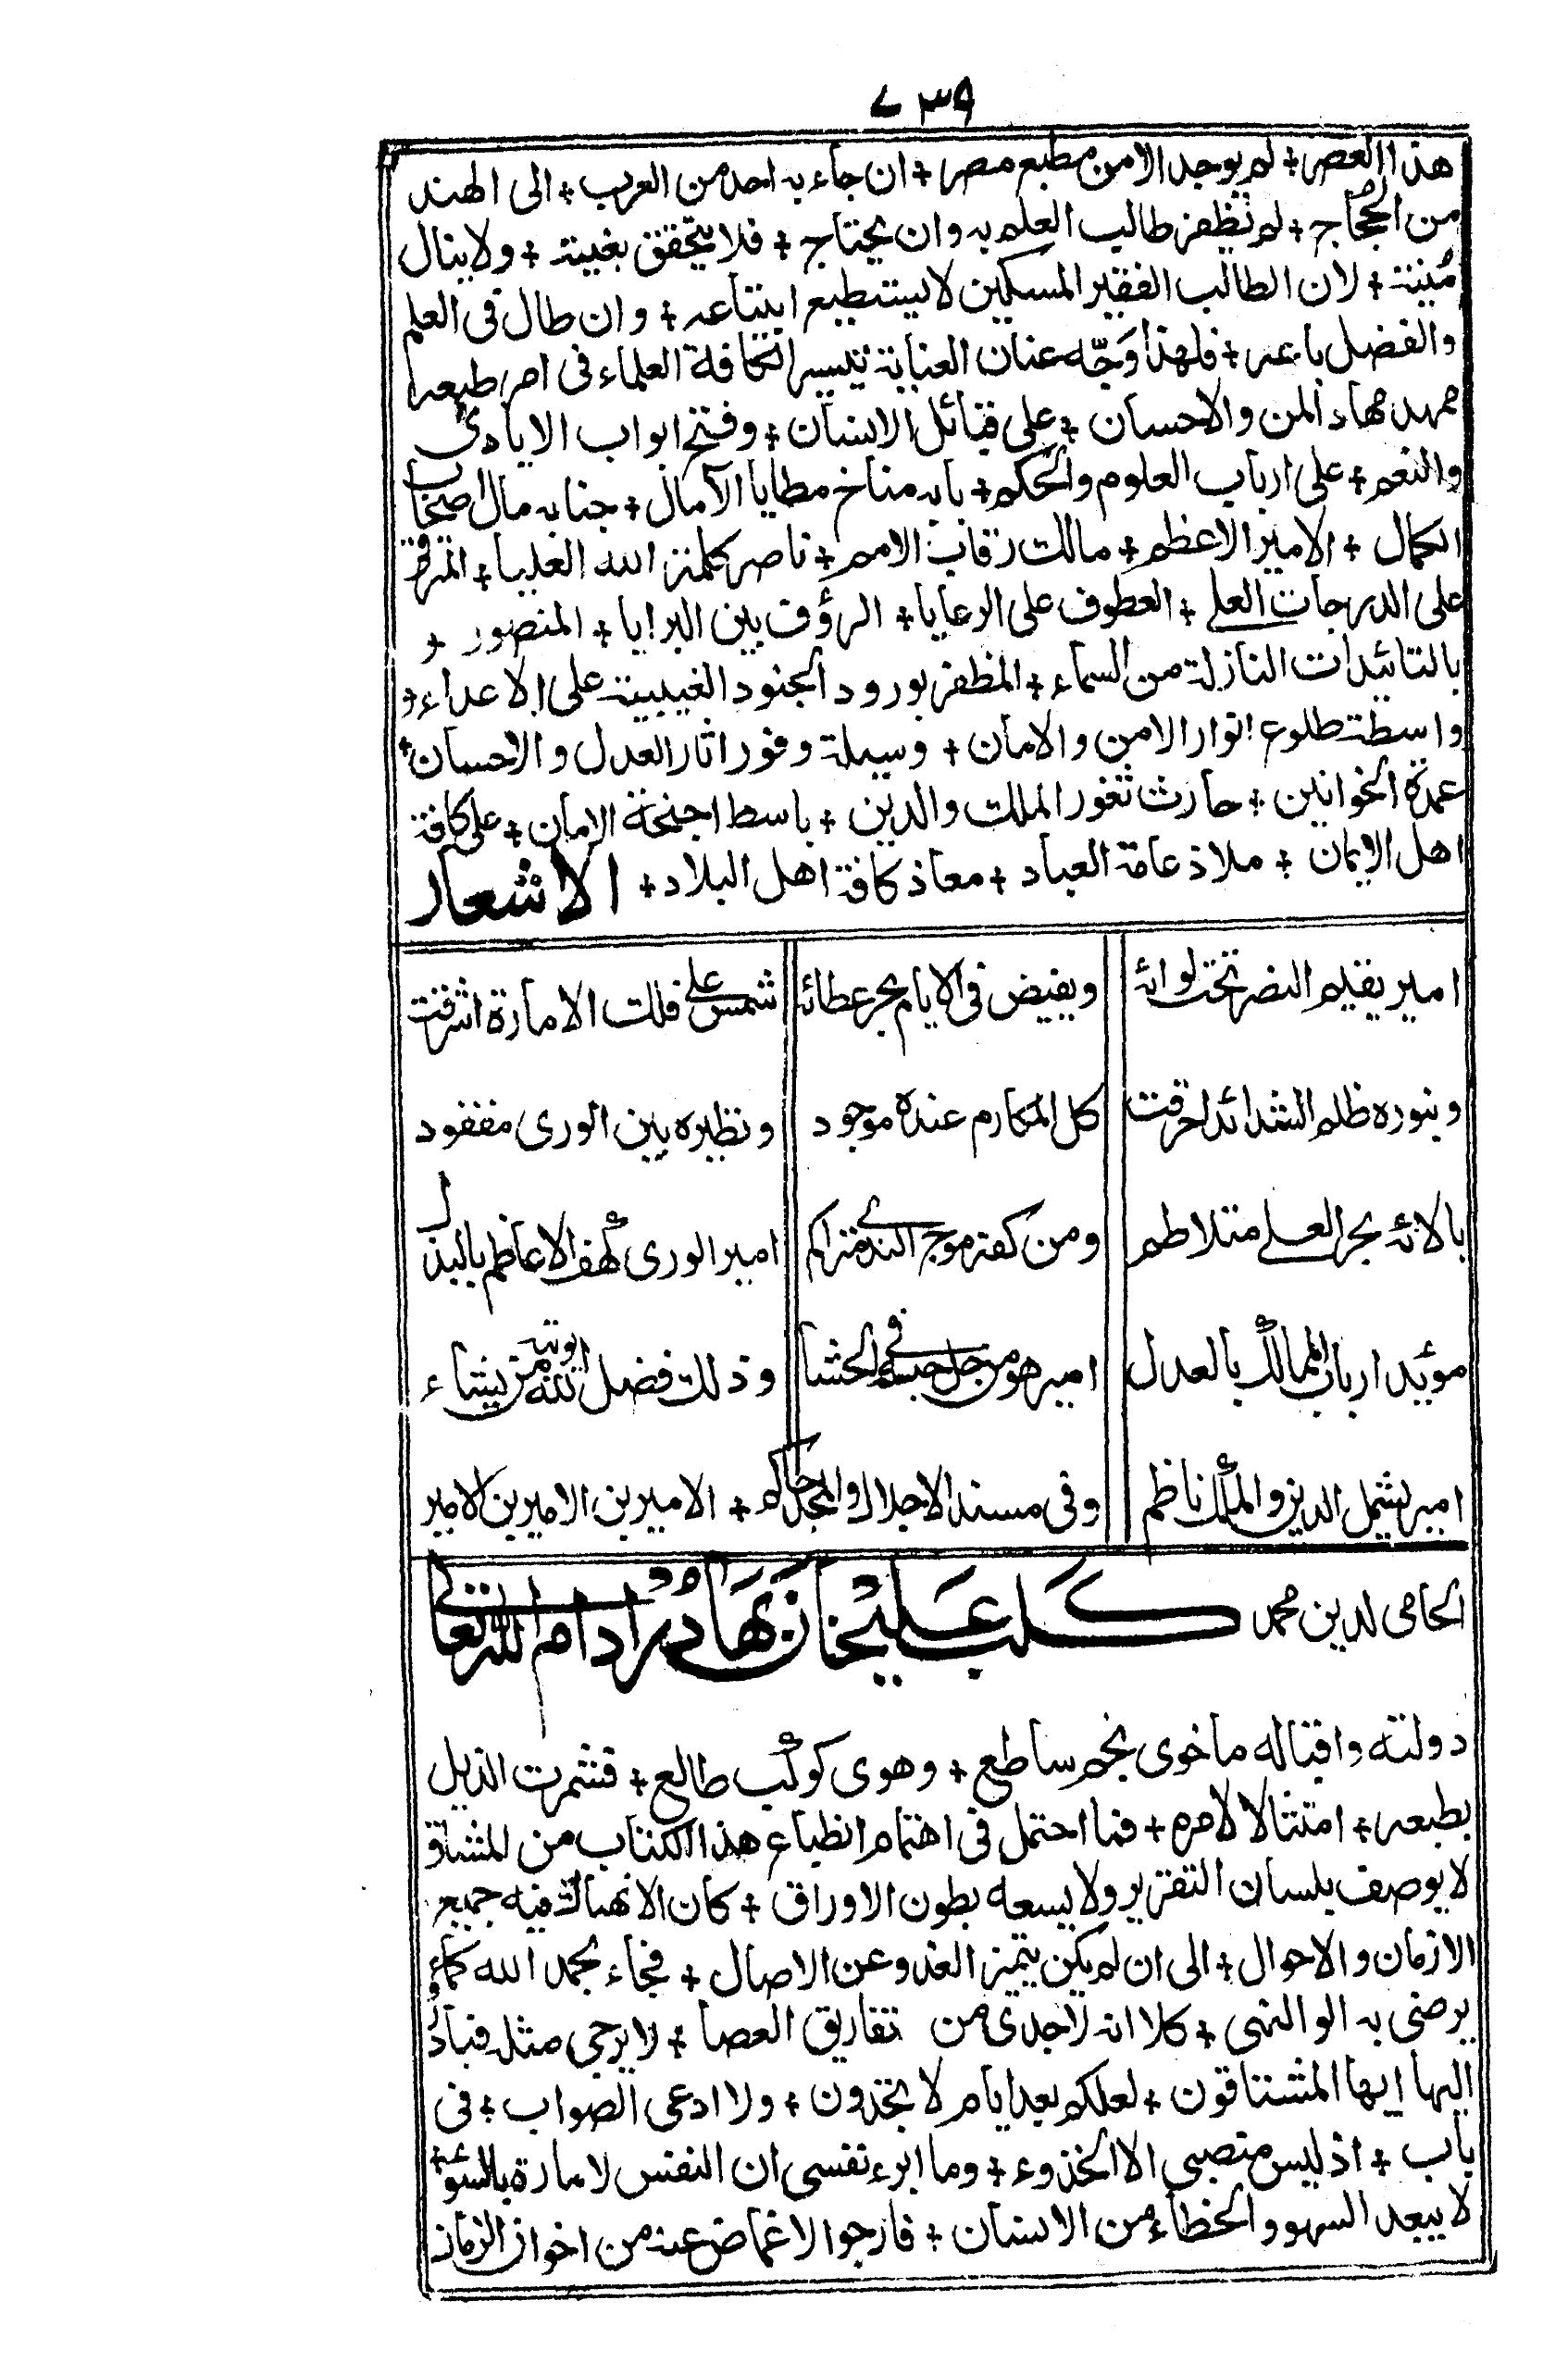 ۷۳۹
هذا العصر + لم يوجد الا من مطبع مصر + ان جاء به احد من العرب + الى الهند
من الحُجّاج + لم يظفر طالب العلم به وان يحتاج + فلا يتحقق بغيته + ولا ينال
مُنيته + لان الطالب الفقير المسكين لا يستطيع ابتياعه + وان طال فى العلم
والفضل باعه + فلهذا وَجّه عنان العناية تيسيرا لكافة العلماء فى امر طبعه
ممهد مهاد المن والاحسان + على قبائل الانسان + وفتح ابواب الايادى
والنعم + على ارباب العلوم والحكم + بابه مناخ مطايا الآمال + جنابه مآل اصحاب
الكمال + الامير الاعظم + مالك رقاب الامم + ناصر كلمة الله العليا + المترقى
على الدرجات العلے + العطوف على الرعايا + الرؤف بين البرايا + المنصور +
بالتائيدات النازلة من السماء + المظفر بورود الجنود الغيبية على الاعداء +
واسطة طلوع انوار الامن والامان + وسيلة وفور اثار العدل والاحسان +
عمدة الخوانين + حارث ثغور الملك والدين + باسط اجنحة الامان + على كافة
اهل الايمان + ملاذ عامة العباد + معاذ كافة اهل البلاد + الاشعار
امير يقيم النصر تحت لوائه ويفيض فى الايام بحر عطائه شمس على فلك الامارة اشرقت
وبنوره ظلم الشدائد احرقت كل المكارم عنده موجود ونظيره بين الورى مفقود
بالائه بحر العلے متلاطم ومن كفه موج الندے متراكم امير الورى كهف الاعاظم بالبذل
مؤيد ارباب الممالك بالعدل امير هو من جل حبه فى الحشا وذلك فضل الله يوتيه من يشاء
امير لشمل الدين والملك ناظم وفى مسند الاجلال والمجد حاكم + الامير بن الامير بن الامير
الحامى لدين محمد كلب عليخان بهادر ادام الله تعالى
دولته واقباله ما خوى نجم ساطع + وهوى كوكب طالع + فشمرت الذيل
بطبعه + امتثالا لامره + فما احتمل فى اهتمام انطباع هذا الكتاب من المشاق
لا يوصف بلسان التقرير ولا يسعه بطون الاوراق + كان الانهماك فيه جميع
الازمان والاحوال + الى ان لم يكن يتميز الغدو عن الاصال + فجاء بحمد الله كما
يرضى به الو النهى + كلا انه لاجدى من تفاريق العصا + لا يرجى مثله فبادروا
اليها ايها المشتاقون + لعلكم بعد ايام لا تجدون + ولا ادعى الصواب + فى
باب + اذ ليس منصبى الا الخذوء + وما ابرء نفسى ان النفس لامارة بالسوء +
لا يبعد السهو والخطاء من الانسان + فارجوا لاغماض عنه من اخوان الزمان